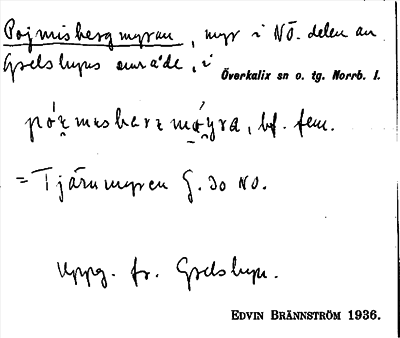 Pojmisbergmyran, myr i NÖ. delen av
Gyelsbyns område, i
Överkalix sn o. tg. Norrb. l.
bf. fem.
= Tjärnmyren G. 30 NO.
Uppg. fr. Gyelsbyn.
EDVIN BRÄNNSTRÖM 1936.